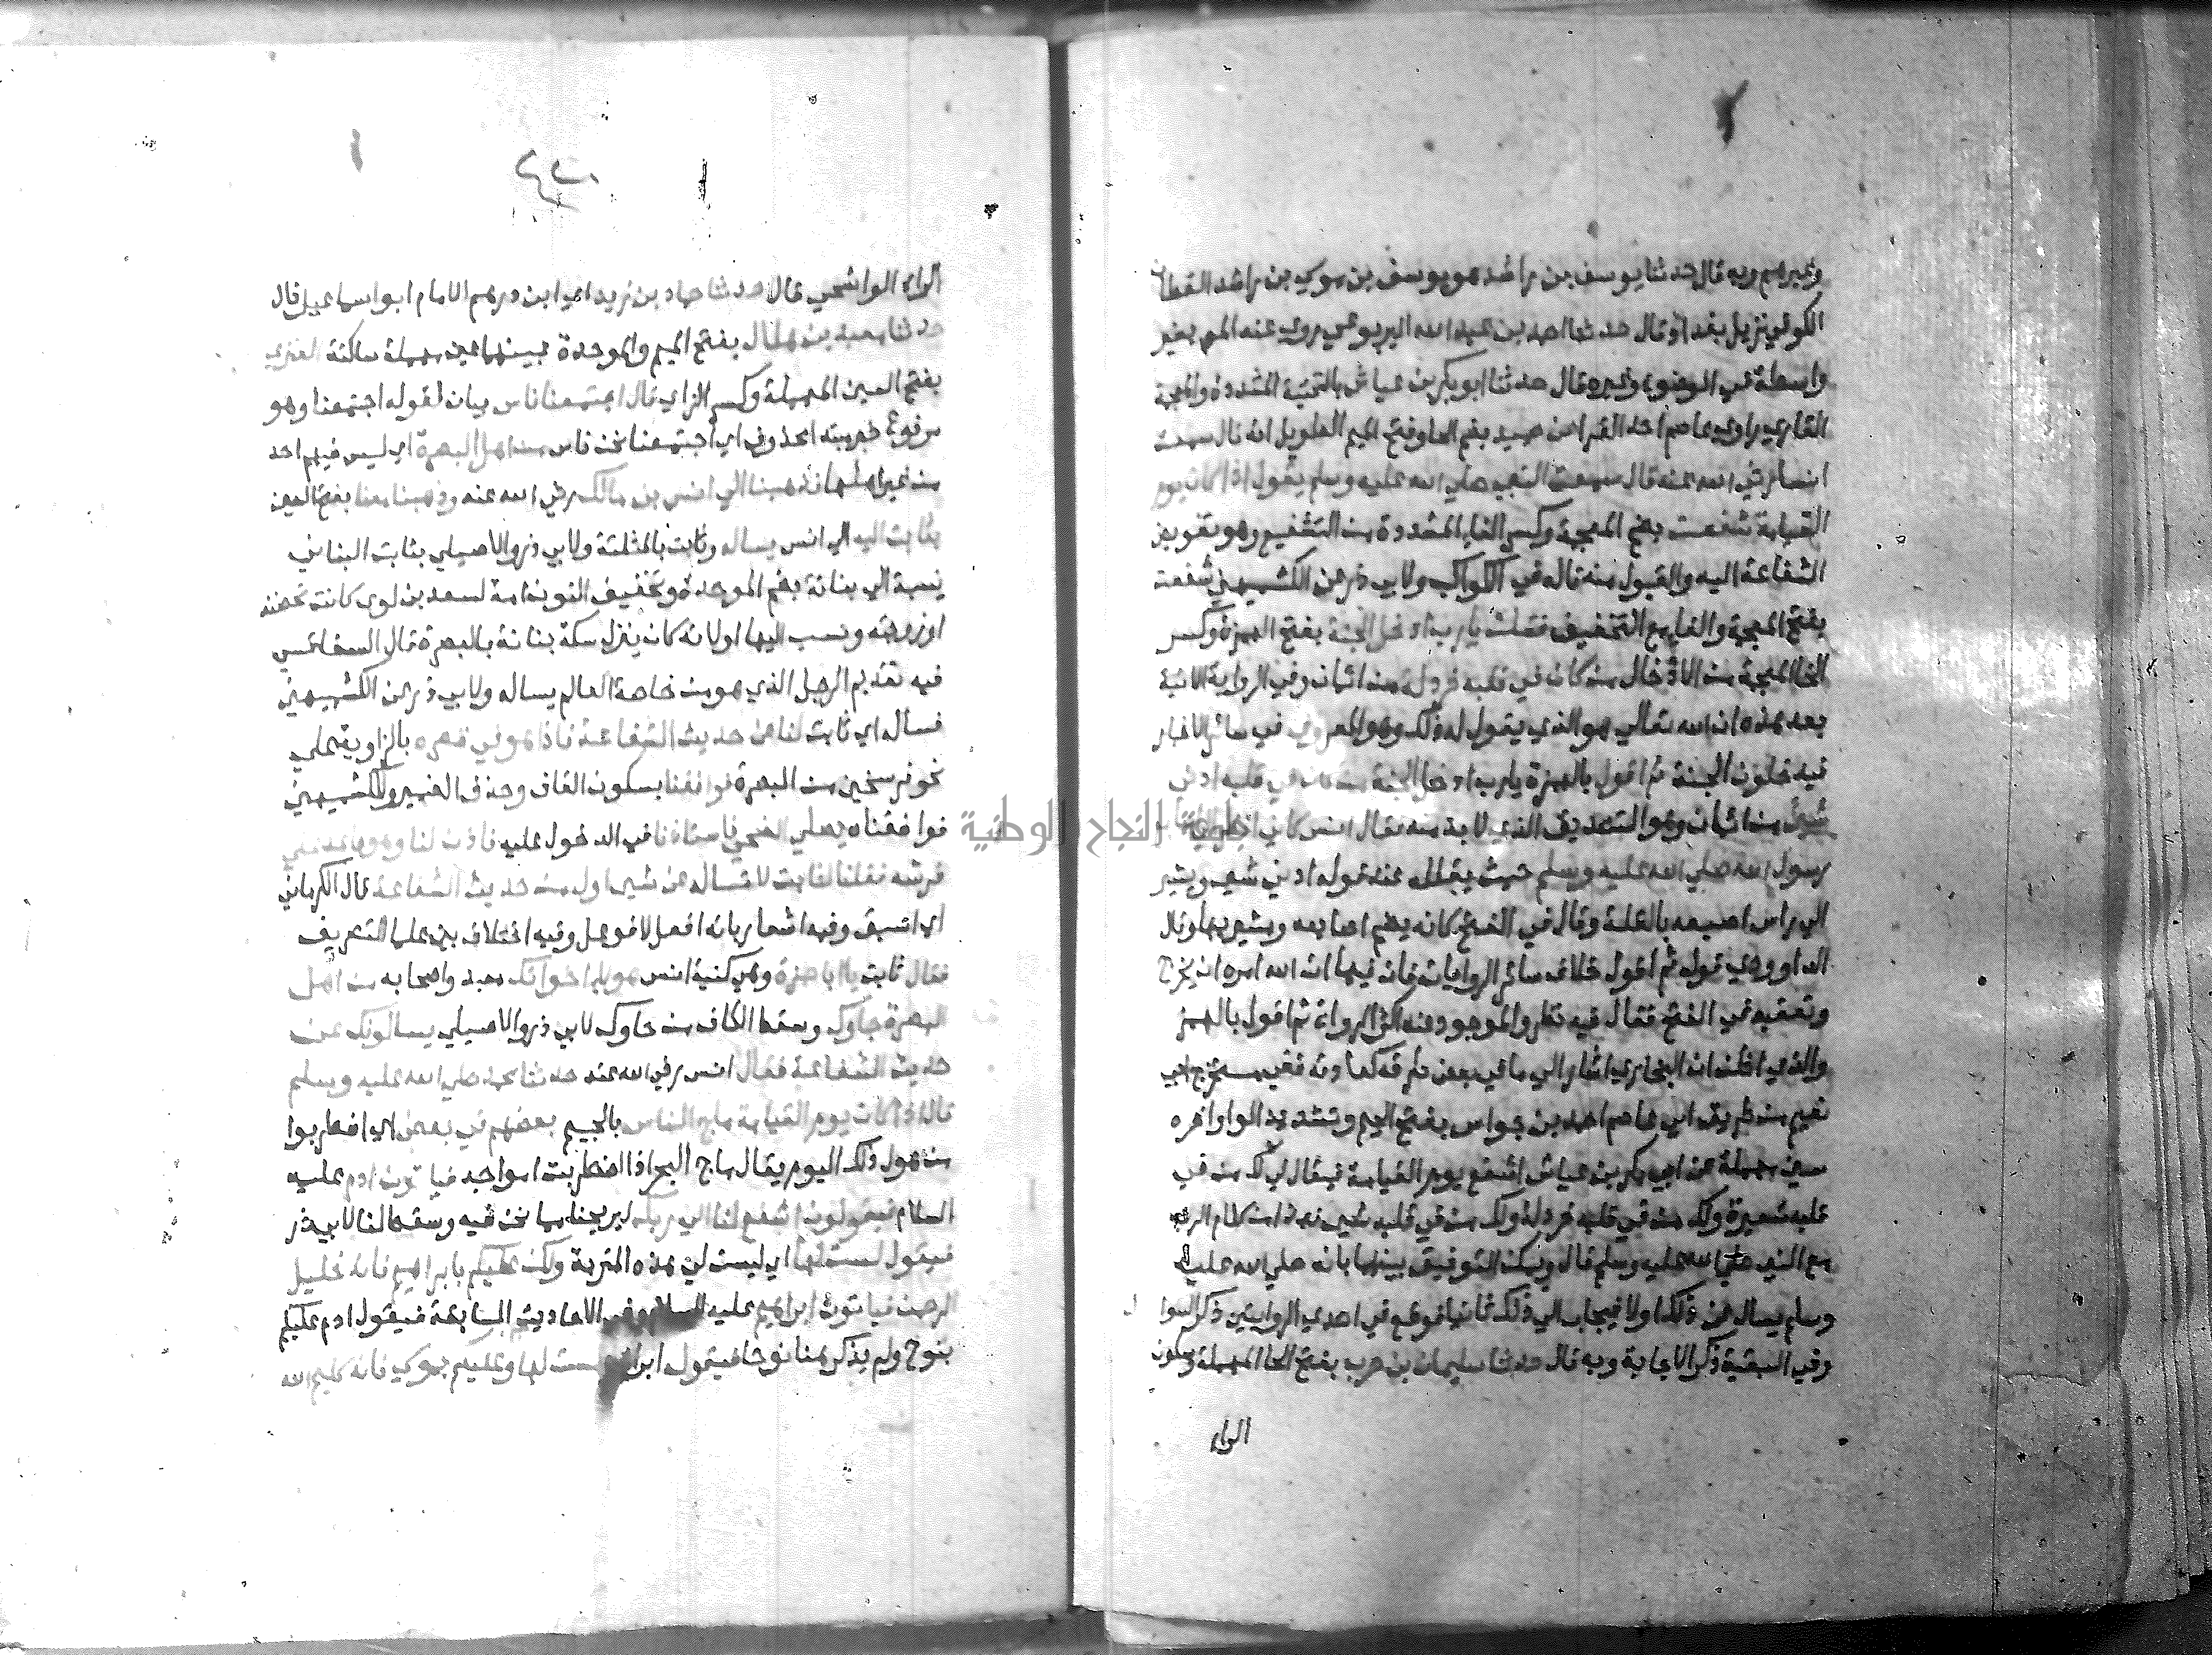 وغيرهم وبه قال حدثنا يوسف بن راشد هو يوسف بن موسى بن راشد القطان
الكوفي نزيل بغداد قال حدثنا احمد بن عبد الله اليربوعي روى عنه المص بغير
واسطة في الوضوء وغيره قال حدثنا ابو بكر بن عياش بالتحتية المشددة والمعجمة
القاري راوي عاصم احد القرا عن حميد بضم الحا وفتح الميم الطويل انه قال سمعت
انسا رضي الله عنه قال سمعت النبي صلي الله عليه وسلم يقول اذا كان يوم
القيامة شفعت بضم المعجمة وكسر الفاء المشددة من التشفيع وهو تفويض
الشفاعة اليه والقبول منه قاله في الكواكب ولابي ذر عن الكشميهني شفعت
بفتح المعجمة والفا مع التخفيف فقلت يارب ادخل الجنة بفتح الهمزة وكسر
الخا المعجمة من الادخال من كان في قلبه خردلة من ايمان وفي الرواية الاتية
بعد هذه ان الله تعالي هو الذي يقول له ذلك وهو المعروف في سائر الاخبار
فيدخلون الجنة ثم اقول بالهمزة يارب ادخل الجنة من كان في قلبه ادنى
شيء من ايمان وهو التصديق الذي لا بد منه فقال انس كاني انظر الى اصابع
رسول الله صلي الله عليه وسلم حيث يقلله عند قوله ادني شي ويشير
الي راس اصبعه بالقلة وقال في الفتح كانه يضم اصابعه ويشير بها وقال
الداوودي قوله ثم اقول خلاف سائر الروايات فان فيها ان الله امره ان يخرج
وتعقبه في الفتح فقال فيه نظر والموجود عند اكثر الرواة ثم اقول بالهمز
والذي اظن ان البخاري اشار الي ما في بعض طرقه كعادته ففي مستخرج ابي
نعيم من طريق ابي عاصم احمد بن جواس بفتح الجيم وتشديد الواو اخره
سين مهملة عن ابي بكر بن عياش اشفع يوم القيامة فيقال لي لك من في
قلبه شعيرة ولك من في قلبه خردلة ولك من في قلبه شي فهذا من كلام الرب
مع النبي صلي الله عليه وسلم قال ويمكن التوفيق بينهما بانه صلي الله عليه
وسلم يسال عن ذلك اولا فيجاب الي ذلك ثانيا فوقع في احدي الروايتين ذكر السوا
وفي البقية ذكر الاجابة وبه قال حدثنا سليمان بن حرب بفتح الحا المهملة وسكون
الراء
الراء الواشحي قال حدثنا حماد بن زيد اي ابن درهم الامام ابو اسماعيل قال
حدثنا معبد بن هلال بفتح الميم والموحدة بينهما عين مهملة ساكنة العنزي
بفتح العين المهملة وكسر الزاي قال اجتمعنا ناس بيان لقوله اجتمعنا وهو
مرفوع خبر مبتدا محذوف اي اجتمعنا نحن ناس من اهل البصرة اي ليس فيهم احد
من غير اهلها فذهبنا الي انس بن مالك رضي الله عنه وذهبنا معنا بفتح العين
بثابت اليه الي انس يساله وثابت بالمثلثة ولابي ذر والاصيلي بثابت البناني
نسبة الي بنانة بضم الموحدة وتخفيف النون امة لسعد بن لوى كانت تحضنه
او زوجته ونسب اليها او لانه كان ينزل سكة بنانة بالبصرة قال السفاقسي
فيه تقديم الرجل الذي هو من خاصة العالم يساله ولابي ذر عن الكشميهني
فساله اي ثابت لنا عن حديث الشفاعة فاذا هو في قصره بالزاوية علي
نحو فرسخين من البصرة فوافقنا بسكون القاف وحذف الضمير وللكشميهني
فوافقناه يصلي الضحي فاستاذنا في الدخول عليه فاذن لنا وهو قاعد علي
فرشه فقلنا لثابت لا تساله عن شي اول من حديث الشفاعة قال الكرماني
اي اسبق وفيه اشعار بانه افعل لا فوعل وفيه اختلاف بين علما التصريف
فقال ثابت يا ابا حمزة وهي كنية انس هولاء اخوانك معبد واصحابه من اهل
البصرة جاوك وسقط الكاف من جاوك لابي ذر والاصيلي يسالونك عن
حديث الشفاعة فقال انس رضي الله عنه حدثنا محمد صلي الله عليه وسلم
قال اذا كان يوم القيامة ماج الناس بالجيم بعضهم في بعض اي اضطربوا
من هول ذلك اليوم يقال ماج البحر اذا اضطربت امواجه فياتون ادم عليه
السلام فيقولون اشفع لنا الي ربك ليريحنا مما نحن فيه وسقط لنا لابي ذر
فيقول لست لها اي ليست لي هذه المرتبة ولكن عليكم بابراهيم فانه خليل
الرحمن فياتون ابراهيم عليه السلام وفي الاحاديث السابقة فيقول ادم عليكم
بنوح ولم يذكر هنا نوحا فيقول لست لها وعليكم بموسي فانه كليم الله
جامعة النجاح الوطنية